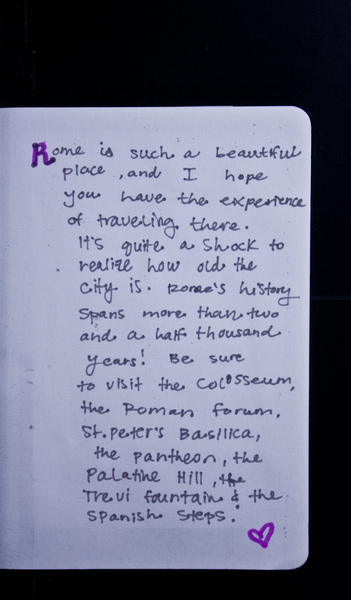 Rome is such a beautiful
place, and I hope
you have the experience
of traveling there.
It's quite a shock to
realize how old the
city is. Rome's history
spans more than two
and a half thousand
years! Be sure
to visit the Colosseum,
the Roman forum,
St. Peter's Basilica,
the pantheon, the
Palatine Hill, the
Trevi fountain & the
Spanish Steps.